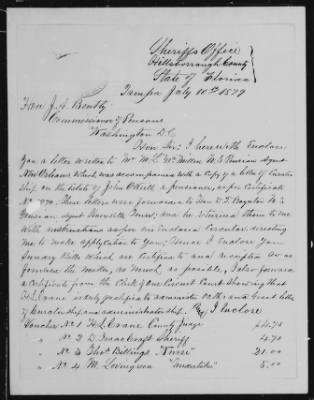 Sheriffs Office
Hillsborrough County
State of Florida
Tampa July 10th 1879
Hon J. A. Bently
Commissioner of Pensions
Washington D.C.
Hon Sir; I herewith Enclose
You a letter written to Mr M. L. McMillen U.S Pension Agent
New Orleans which was accompanied with a Copy of a letter of Curator
Ship on the Estate of John O'Neill a pensioner, as per Certificate
No 970. These letters were forwarded to Gen D. T. Boynton U.S
Pension Agent Knoxville Tenn; and he returned them to me
with instructions as per our Enclosed Circular directing
me to make application to You; Hence I Enclose You
Sundry Bills which are Certificate and receipted so as
forward the matter, as much, as possible, I also forward
a Certificate from the Clerk of our Circuit Court Showing that
H L Crane is duly qualified to administer Oaths and Grant letters
of Curatorship and administratorship. I Enclose
Voucher No 1 H L Crane County Judge
" No 2 D. Isaac Craft Sheriff 4.70
" No 3 Thos Billings "Nurse" 21.00
" No 4 M. Lovingwa "Undertaker" 5.00